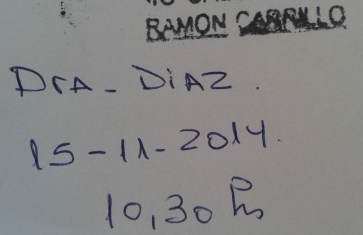 RAMON CARRILLO
Dra - DiAZ.
15-11-2014.
10,30 hs